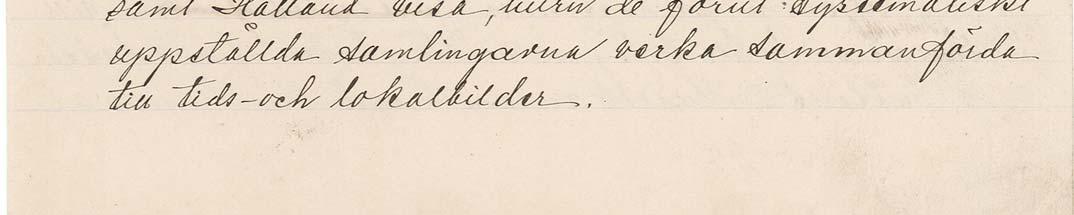 samt Halland visa, huru de förut systematiskt
uppställda samlingarna verka sammanförda
till tids- och lokalbilder.